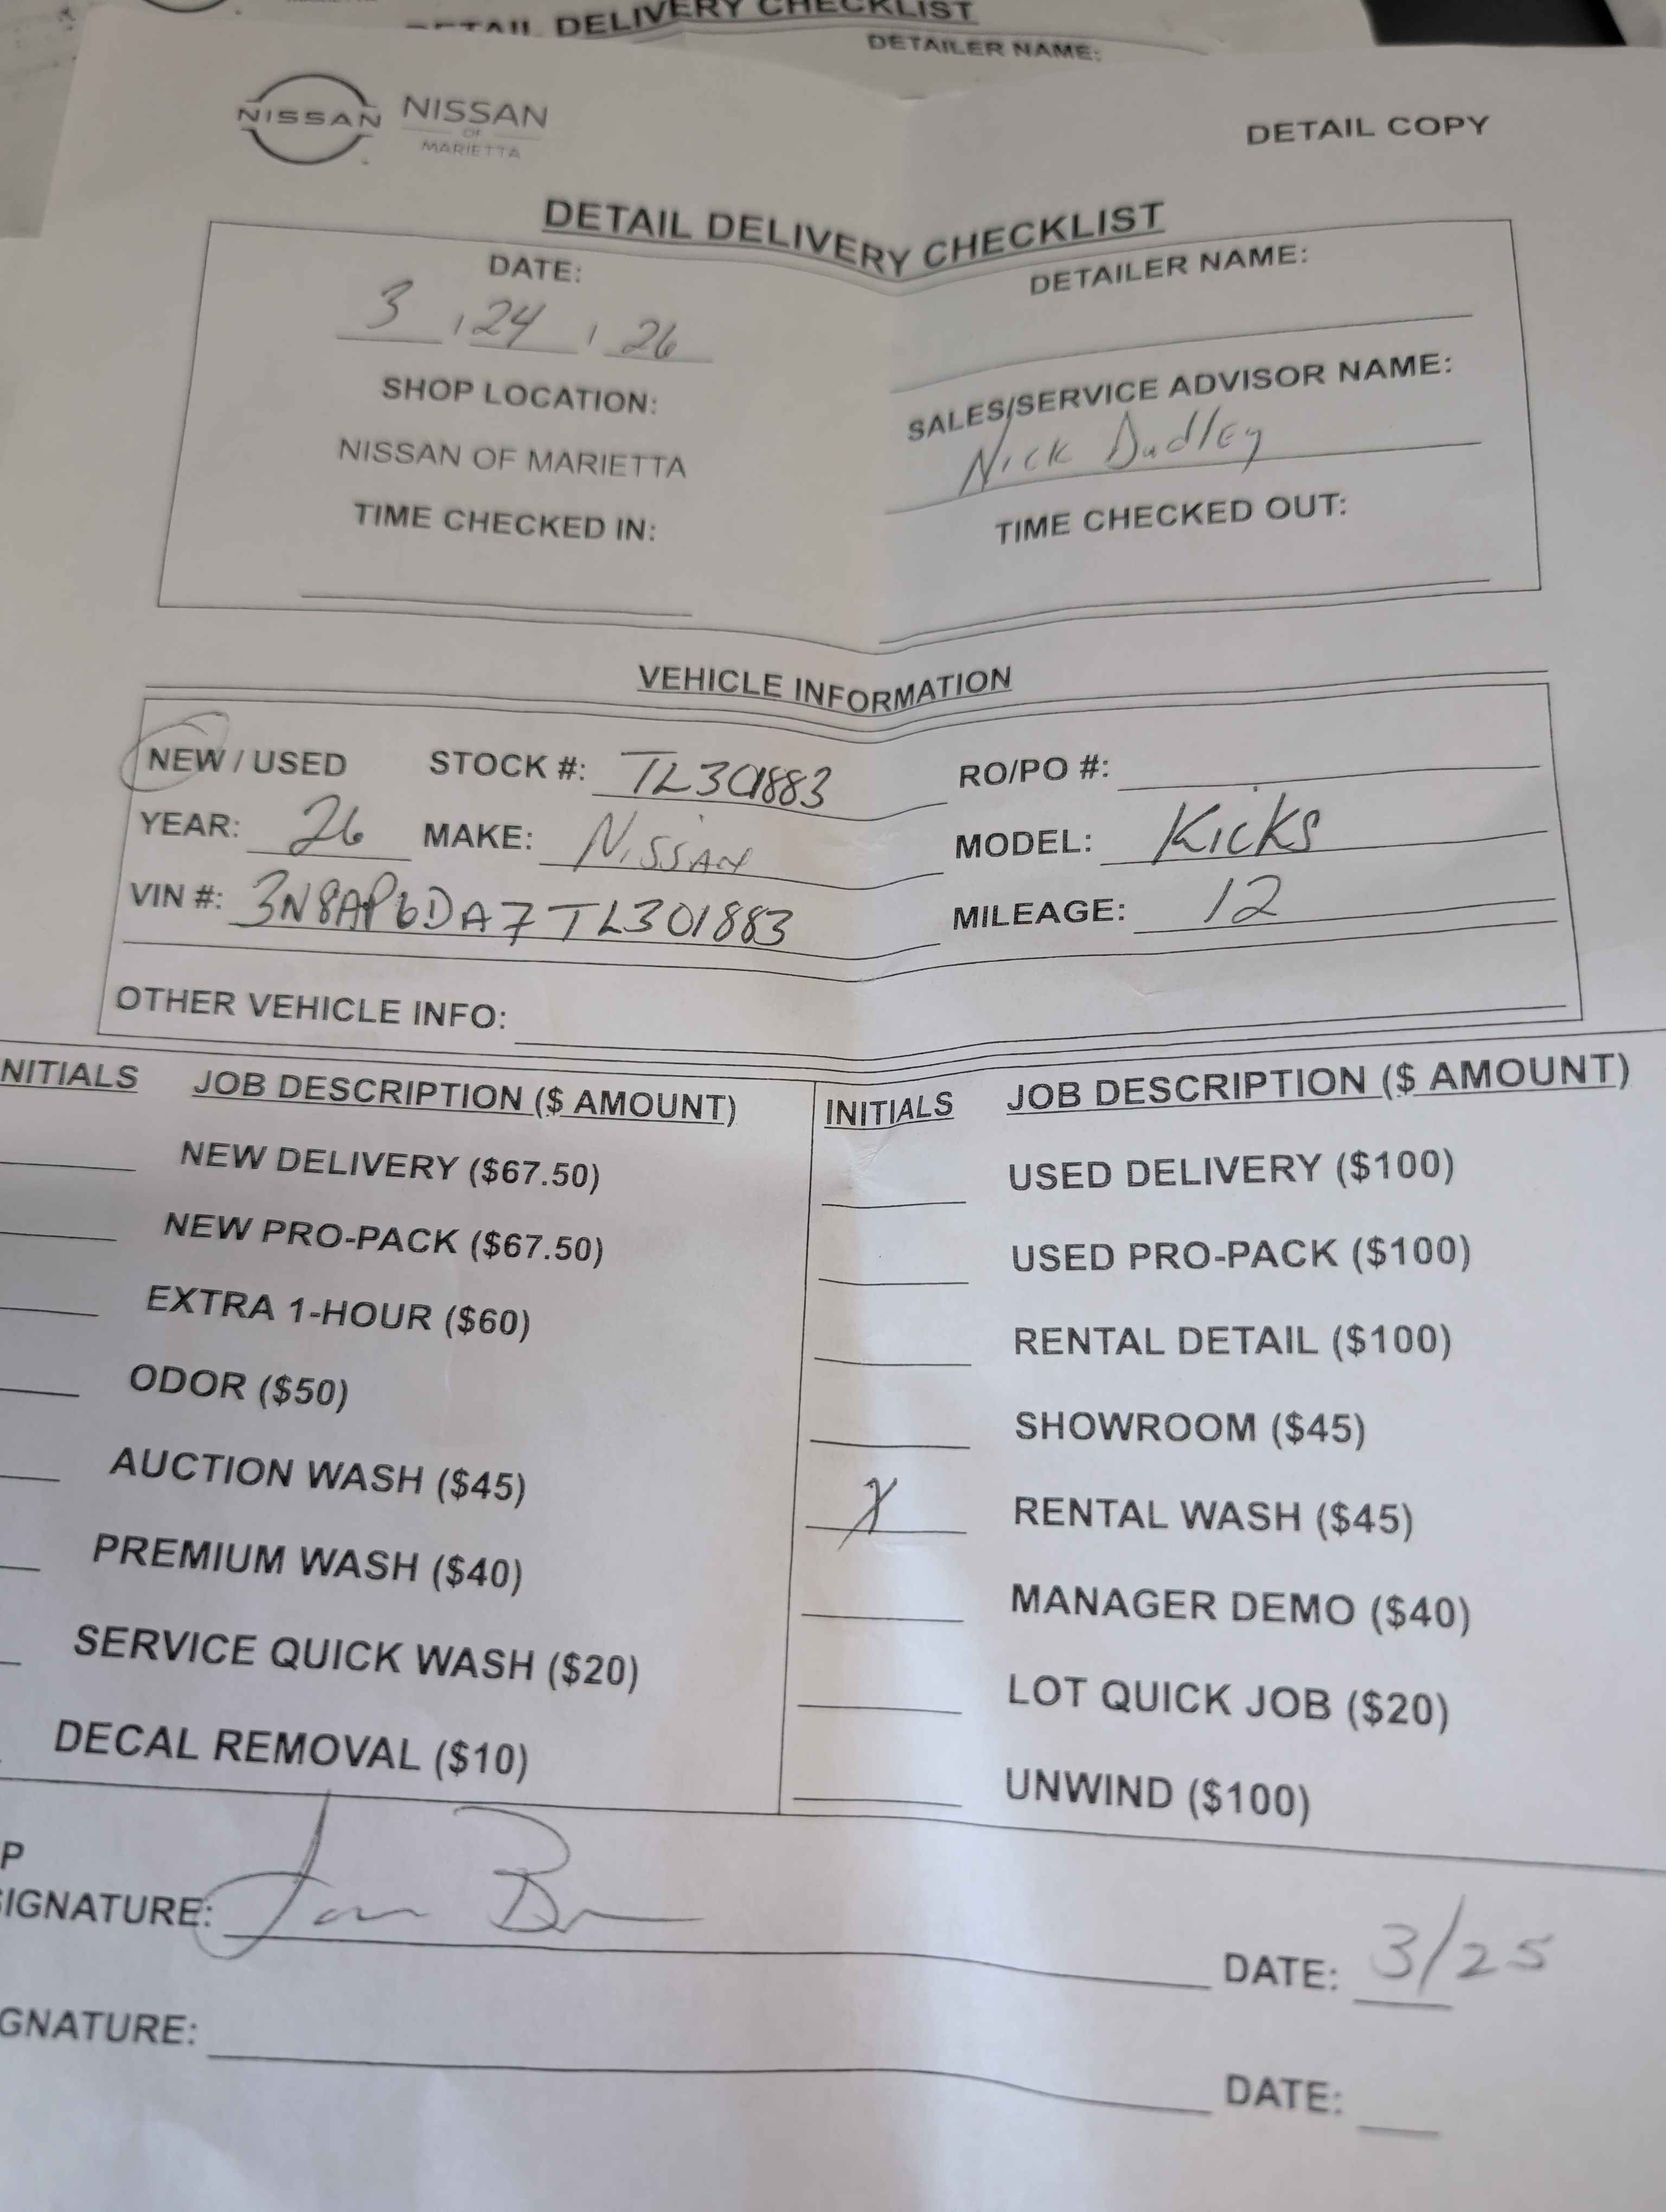 DETAIL DELIVERY CHECKLIST
DETAILER NAME:
NISSAN NISSAN
OF
MARIETTA
DETAIL COPY
DETAIL DELIVERY CHECKLIST
DATE:
3 / 24 / 26
SHOP LOCATION:
NISSAN OF MARIETTA
TIME CHECKED IN:
DETAILER NAME:
SALES/SERVICE ADVISOR NAME:
Nick Dudley
TIME CHECKED OUT:
VEHICLE INFORMATION
NEW / USED STOCK #: TL301883 RO/PO #:
YEAR: 26 MAKE: Nissan MODEL: Kicks
VIN #: 3N8AP6DA7TL301883 MILEAGE: 12
OTHER VEHICLE INFO:
NITIALS JOB DESCRIPTION ($ AMOUNT)
NEW DELIVERY ($67.50)
NEW PRO-PACK ($67.50)
EXTRA 1-HOUR ($60)
ODOR ($50)
AUCTION WASH ($45)
PREMIUM WASH ($40)
SERVICE QUICK WASH ($20)
DECAL REMOVAL ($10)
INITIALS JOB DESCRIPTION ($ AMOUNT)
USED DELIVERY ($100)
USED PRO-PACK ($100)
RENTAL DETAIL ($100)
SHOWROOM ($45)
X RENTAL WASH ($45)
MANAGER DEMO ($40)
LOT QUICK JOB ($20)
UNWIND ($100)
P
SIGNATURE: DATE: 3/25
GNATURE: DATE: